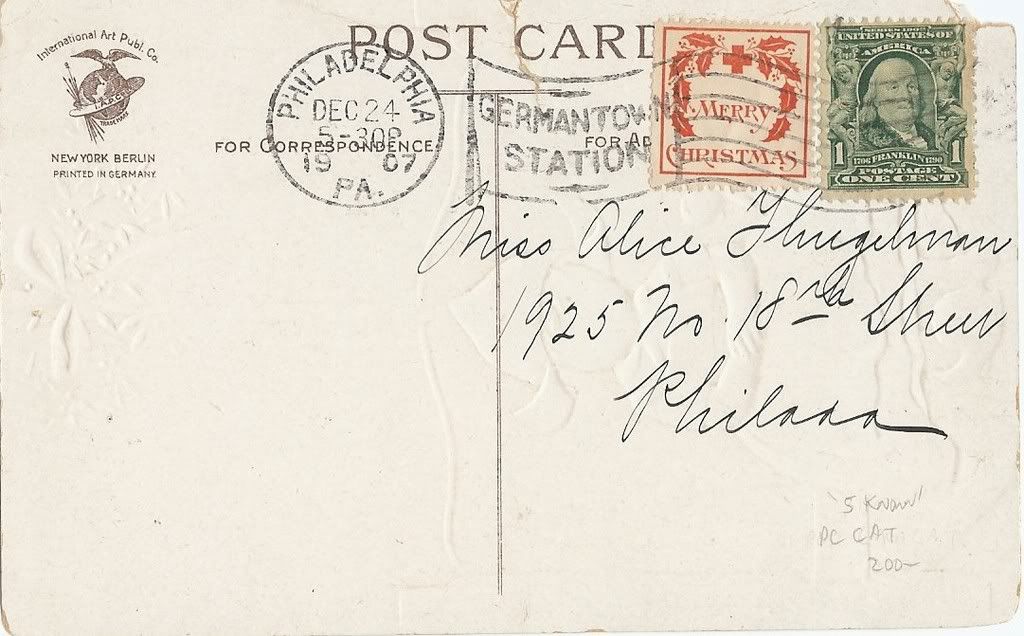 International Art Publ. Co.
I.A.P.Co.
TRADEMARK
NEW YORK BERLIN
PRINTED IN GERMANY.
POST CARD
FOR CORRESPONDENCE
FOR AD
PHILADELPHIA
DEC 24
5-30P
19 07
PA.
GERMANTOWN
STATION
MERRY
CHRISTMAS
SERIES 1902
UNITED STATES OF
AMERICA
1 1706 FRANKLIN 1790 1
POSTAGE
ONE CENT
Miss Alice
1925 No. 18th Street
Philada
'5 KNOWN'
PC CAT
200-